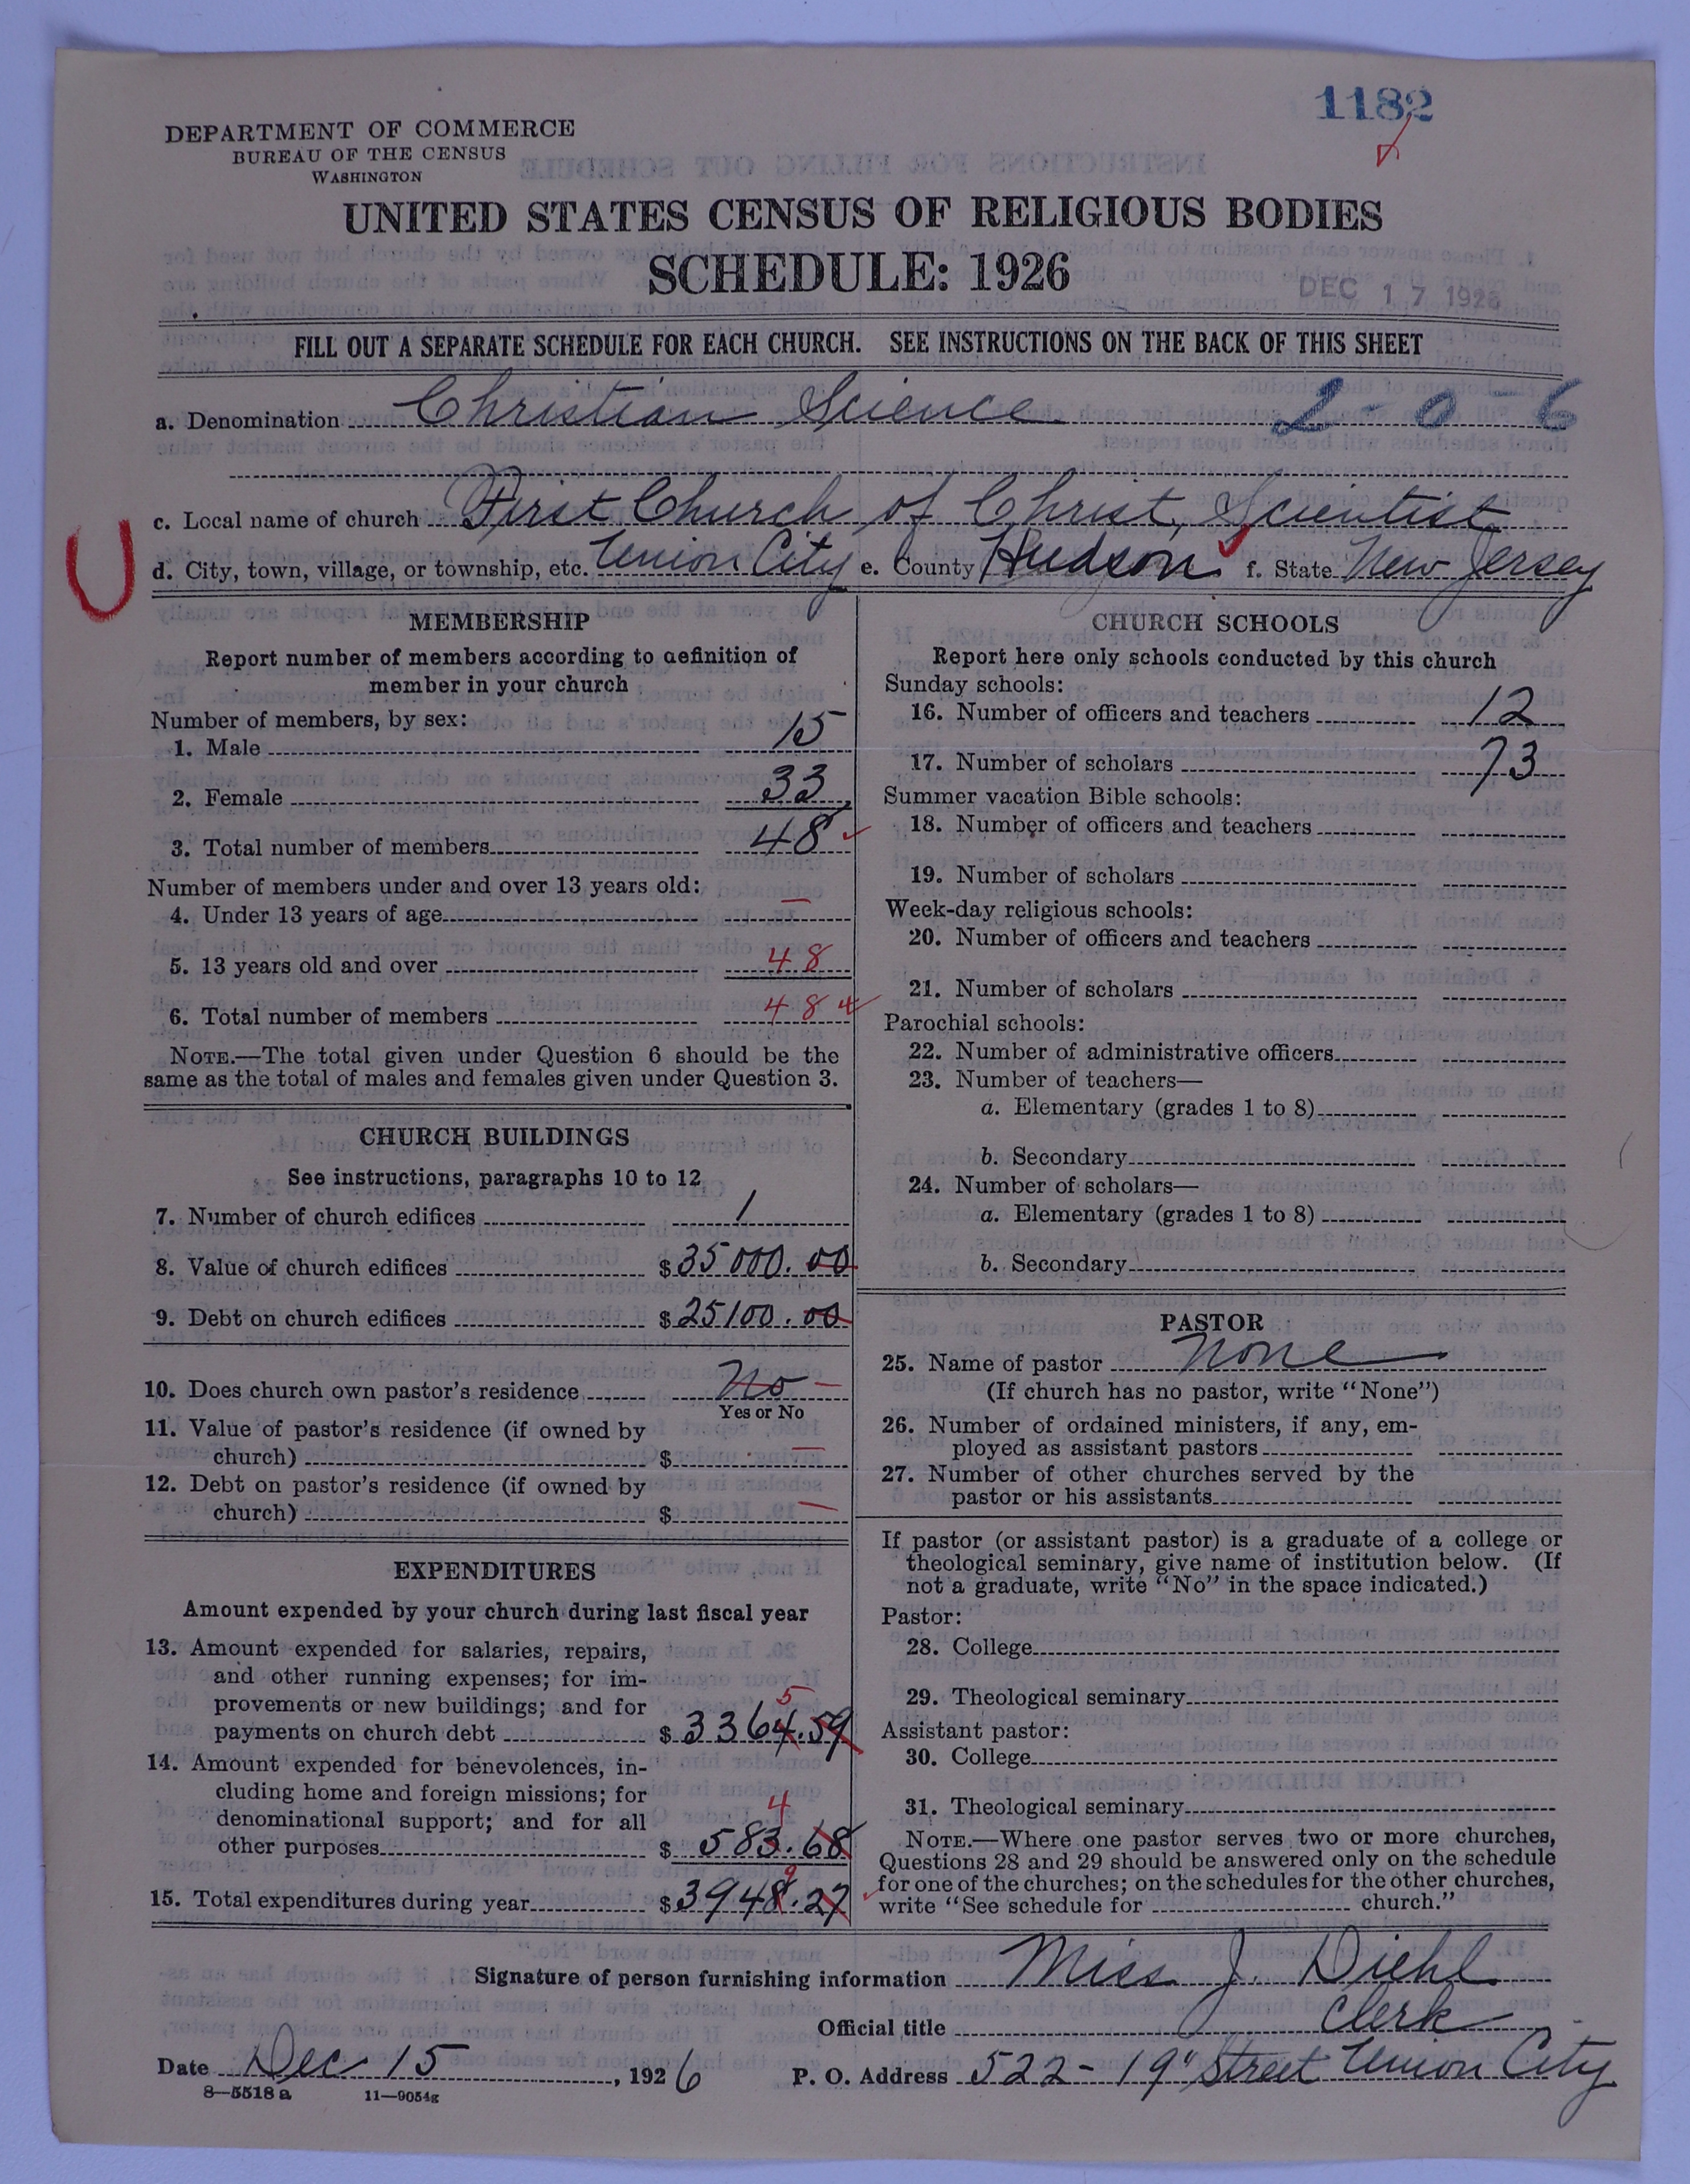 1182
DEPARTMENT OF COMMERCE
BUREAU OF THE CENSUS
WASHINGTON
UNITED STATES CENSUS OF RELIGIOUS BODIES
SCHEDULE: 1926
DEC 17 1926
FILL OUT A SEPARATE SCHEDULE FOR EACH CHURCH. SEE INSTRUCTIONS ON THE BACK OF THIS SHEET
a. Denomination Christian Science 2-0-6
c. Local name of church First Church of Christ, Scientist
U
d. City, town, village, or township, etc. Union City e. County Hudson f. State New Jersey
MEMBERSHIP
Report number of members according to definition of
member in your church
Number of members, by sex:
1. Male 15
2. Female 33
3. Total number of members 48
Number of members under and over 13 years old:
4. Under 13 years of age —
5. 13 years old and over 48
6. Total number of members 48
NOTE.—The total given under Question 6 should be the
same as the total of males and females given under Question 3.
CHURCH BUILDINGS
See instructions, paragraphs 10 to 12
7. Number of church edifices 1
8. Value of church edifices $ 35000.00
9. Debt on church edifices $ 25100.00
10. Does church own pastor's residence No —
Yes or No
11. Value of pastor's residence (if owned by
church) $ —
12. Debt on pastor's residence (if owned by
church) $ —
EXPENDITURES
Amount expended by your church during last fiscal year
13. Amount expended for salaries, repairs,
and other running expenses; for im-
provements or new buildings; and for
5
payments on church debt $ 3364.59
14. Amount expended for benevolences, in-
cluding home and foreign missions; for
4
denominational support; and for all
other purposes $ 583.68
9
15. Total expenditures during year $ 3948.27
CHURCH SCHOOLS
Report here only schools conducted by this church
Sunday schools:
16. Number of officers and teachers 12
17. Number of scholars 73
Summer vacation Bible schools:
18. Number of officers and teachers
19. Number of scholars
Week-day religious schools:
20. Number of officers and teachers
21. Number of scholars
Parochial schools:
22. Number of administrative officers
23. Number of teachers—
a. Elementary (grades 1 to 8)
b. Secondary
24. Number of scholars—
a. Elementary (grades 1 to 8)
b. Secondary
PASTOR
25. Name of pastor None
(If church has no pastor, write "None")
26. Number of ordained ministers, if any, em-
ployed as assistant pastors
27. Number of other churches served by the
pastor or his assistants
If pastor (or assistant pastor) is a graduate of a college or
theological seminary, give name of institution below. (If
not a graduate, write "No" in the space indicated.)
Pastor:
28. College
29. Theological seminary
Assistant pastor:
30. College
31. Theological seminary
NOTE.—Where one pastor serves two or more churches,
Questions 28 and 29 should be answered only on the schedule
for one of the churches; on the schedules for the other churches,
write "See schedule for church."
Signature of person furnishing information Miss J. Diehl
Official title Clerk
Date Dec 15, 1926 P. O. Address 522-19" Street Union City
8—5518 a 11—9054g